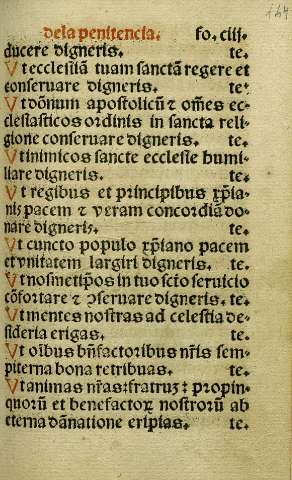 dela penitencia. fo. cliij.
ducere digneris. te.
Ut ecclesiã tuam sanctã regere et
conseruare digneris. te.
Ut dõnum apostolicũ ⁊ om̃es ec-
clesiasticos ordinis in sancta reli-
gione conseruare digneris. te.
Ut inimicos sancte ecclesie humi-
liare digneris. te.
Ut regibus et principibus xp̃ia-
nis pacem ⁊ veram concordiã do-
nare digneris. te.
Ut cuncto populo xp̃iano pacem
et vnitatem largiri digneris. te.
Ut nosmetip̃os in tuo scto seruicio
cõfortare ⁊ ꝯseruare digneris. te.
Ut mentes nostras ad celestia de-
sideria erigas. te.
Ut oĩbus bñfactoribus nr̃is sem-
piterna bona retribuas. te.
Ut animas nr̃as: fratruꝫ: ⁊ propin-
quorũ et benefactoꝝ nostrorũ ab
eterna dãnatione eripias. te.